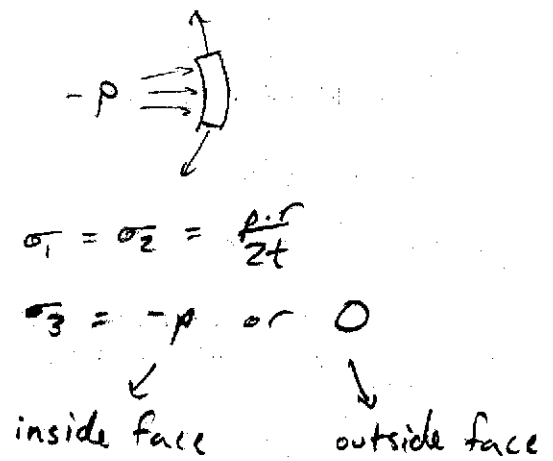 - p
σ₁ = σ₂ = p·r/2t
σ₃ = -p or 0
inside face outside face